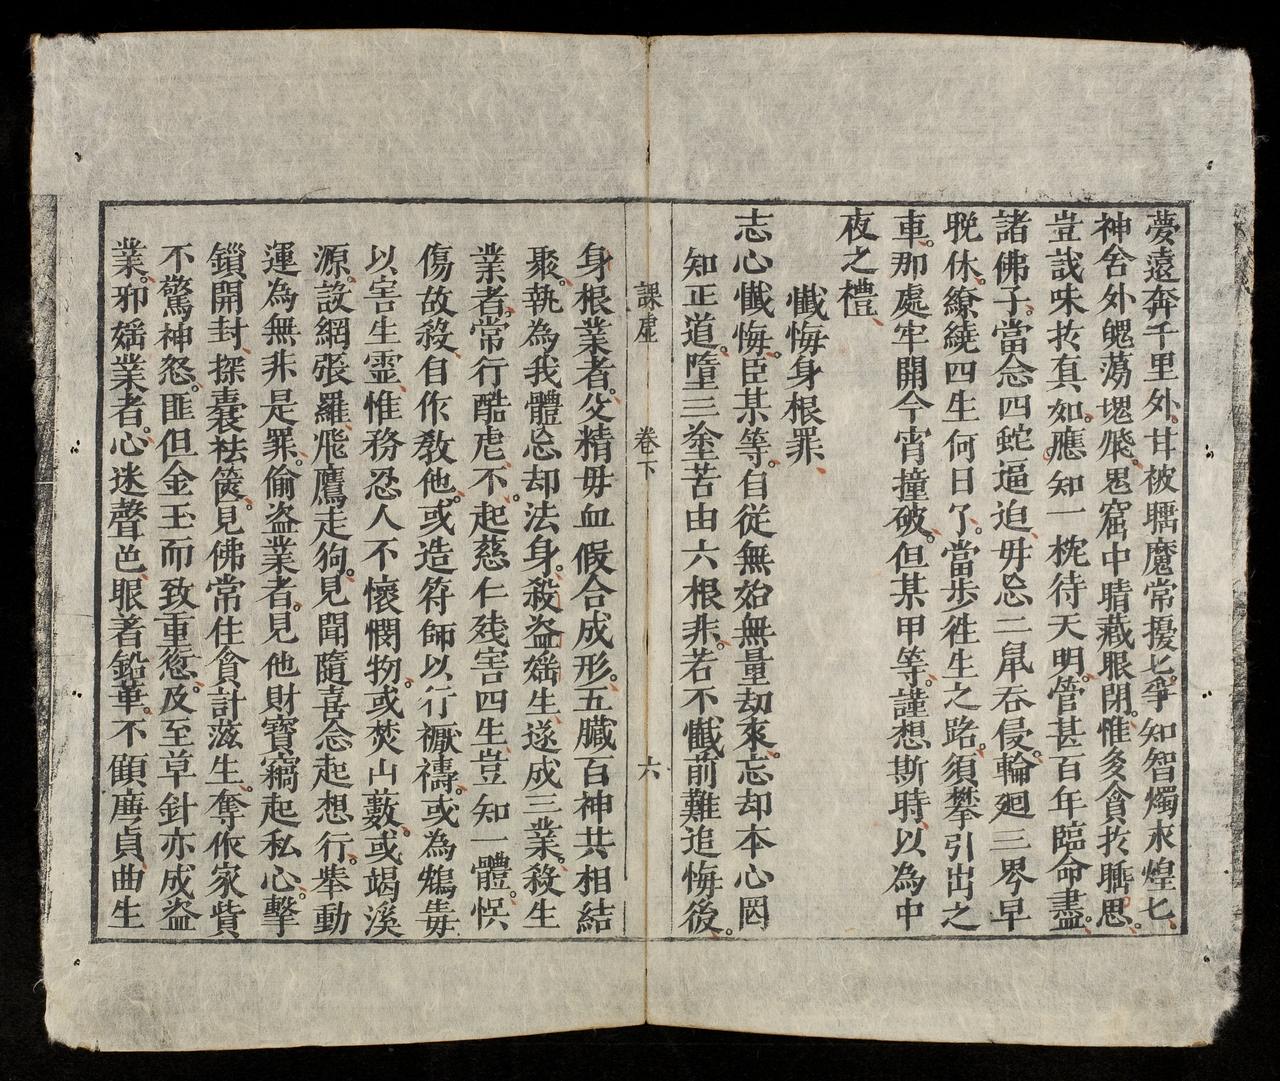 夢遠奔千里外甘被聴魔常擾匕爭知智燭永煌匕
神舍外魍蕩塊飛鬼窟中睛藏眼閉惟多貪扵聴思
豈訧味扵真如應知一枕待天明管甚百年臨命盡
諸佛子當念四蛇逼迫毋忘二鼠吞侵輪廻三界早
晚休繚繞四生何日了當歩徃生之路須攀引出之
車那處牢開今宵撞破但某甲等謹想斯時以為中
夜之禮
懺悔身根罪
志心懺悔臣某等自従無始無量刼來忘却本心罔
知正道墮三塗苦由六根非若不懺前難追悔後
課虚 卷下 六
身根業者父精毋血假合成形五臟百神共相結
聚執為我體忘却法身殺盗婬生遂成三業殺生
業者常行酷虐不起慈仁残害四生豈知一體悞
傷故殺自作教他或造符師以行禳禱或為鴆毒
以害生靈惟務恐人不懷憫物或焚山藪或竭溪
源設網張羅飛鷹走狗見聞隨喜念起想行舉動
運為無非是罪偷盗業者見他財寶竊起私心擊
鎖開封探囊祛篋見佛常住貪計滋生奪依家貲
不驚神怒匪但金玉而致重愆及至草針亦成盗
業邪婬業者心迷聲色眼著鉛華不顧廉貞曲生